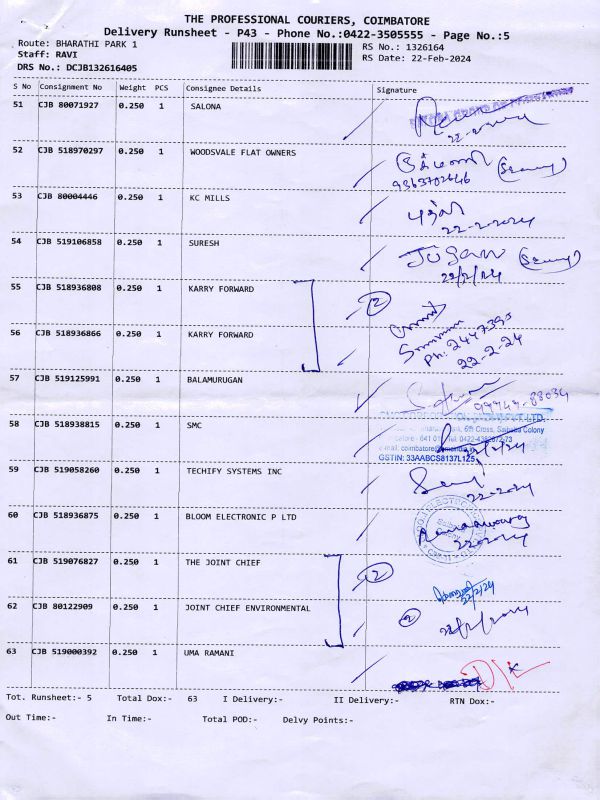 THE PROFESSIONAL COURIERS, COIMBATORE
Delivery Runsheet - P43 - Phone No.:0422-3505555 - Page No.:5
Route: BHARATHI PARK 1
RS No.: 1326164
Staff: RAVI
RS Date: 22-Feb-2024
DRS No.: DCJB132616405
S No Consignment No Weight PCS Consignee Details Signature
51 CJB 80071927 0.250 1 SALONA
52 CJB 518970297 0.250 1 WOODSVALE FLAT OWNERS
9363702646
53 CJB 80004446 0.250 1 KC MILLS
22-2-2024
54 CJB 519106858 0.250 1 SURESH
22/2/24
55 CJB 518936808 0.250 1 KARRY FORWARD
2
56 CJB 518936866 0.250 1 KARRY FORWARD
Ph: 2447390
22-2-24
57 CJB 519125991 0.250 1 BALAMURUGAN
99949-88034
58 CJB 518938815 0.250 1 SMC
6th Cross, Saibaba Colony
GSTIN: 33AABCS8137L1Z5
59 CJB 519058260 0.250 1 TECHIFY SYSTEMS INC
22-2-2024
60 CJB 518936875 0.250 1 BLOOM ELECTRONIC P LTD
61 CJB 519076827 0.250 1 THE JOINT CHIEF
2
22/2/24
62 CJB 80122909 0.250 1 JOINT CHIEF ENVIRONMENTAL
2
22/2/2024
63 CJB 519000392 0.250 1 UMA RAMANI
D/L
Tot. Runsheet:- 5 Total Dox:- 63 I Delivery:- II Delivery:- RTN Dox:-
Out Time:- In Time:- Total POD:- Delvy Points:-